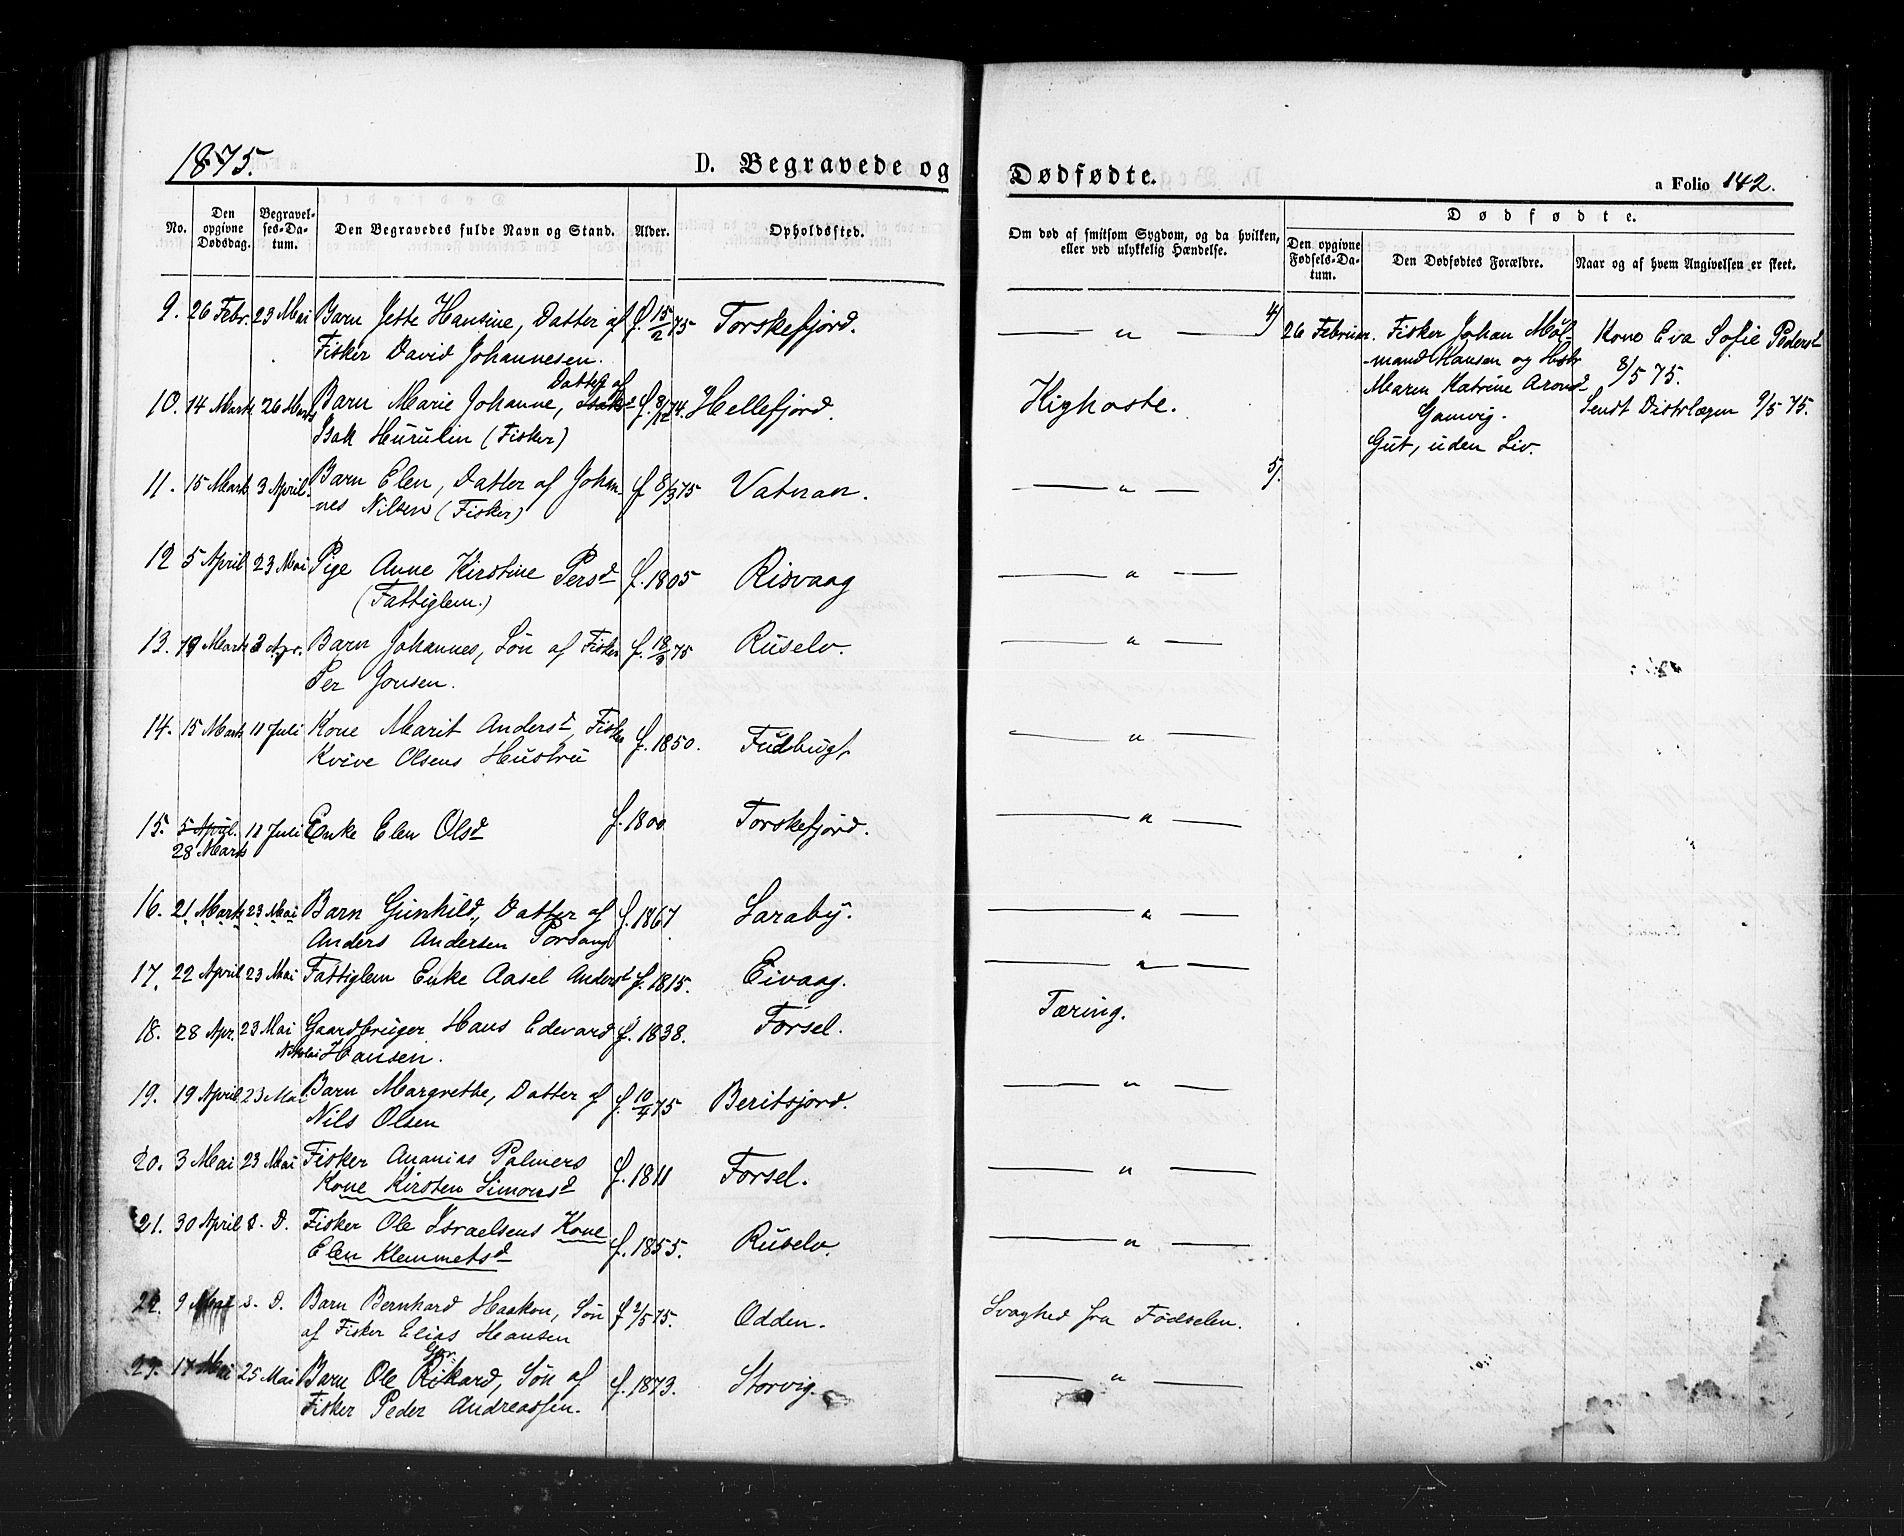 1875.
D. Begravede og Dødfødte.
a Folio 142.
No.
Den opgivne Dødsdag.
Begravelses-Datum.
Den Begravedes fulde Navn og Stand.
Alder.
Opholdssted.
Om død af smitsom Sygdom, og da hvilken,
eller ved ulykkelig Hændelse.
Dødfødte.
Den opgivne Fødsels-Datum.
Den Dødfødtes Forældre.
Naar og af hvem Angivelsen er skeet.
9. 26 Febr. 23 Mai Barn Jette Hansine, Datter af f. 15/2 75 Torskefjord. — " —
Fisker David Johannesen.
10. 14 Marts 26 Marts Barn Marie Johanne, Datter af f. 8/12 74. Hellefjord. Kighoste.
Isak Hurulin (Fisker)
11. 15 Marts 3 April. Barn Elen, Datter af Johan- f 8/3 75 Vatnan. — " —
nes Nilsen (Fisker)
12 5 April 23 Mai Pige Anne Kirstine Persd f. 1805 Risvaag — " —
(Fattiglem.)
13. 19 Marts 3 Apr. Barn Johannes, Søn af Fisker f. 18/3 75 Ruselv. — " —
Per Jonsen.
14. 15 Marts 11 Juli Kone Marit Andersd, Fisker f. 1850. — " —
Kvive Olsens Hustru
15. 5 April. 11 Juli Enke Elen Olsd f. 1800 Torskefjord. — " —
28 Marts
16. 21 Marts 23 Mai Barn Gunhild, Datter af f. 1867. Saraby. — " —
Anders Andersen Porsang
17. 22 April 23 Mai Fattiglem Enke Aasel Andersd f. 1815. Eivaag. — " —
18. 28 Apr. 23 Mai Gaardbruger Hans Edevard f. 1838. Forsel. Tæring.
Nikolai Hansen.
19. 19 April 23 Mai Barn Margrethe, Datter af f. 10/4 75 Beritsjord. — " —
Nils Olsen
20. 3 Mai 23 Mai Fisker Ananias Palmers f. 1811 Forsel. — " —
Kone Kirsten Simonsd
21. 30 April s. D. Fisker Ole Israelsens Kone f. 1855. Ruselv. — " —
Elen Klemmetsd
22. 9 Mai s. D. Barn Bernhard Haakon, Søn f 2/5 75. Odden. Svaghed fra Fødselen.
af Fisker Elias Hansen
23. 17 Mai 25 Mai Barn Ole Rikard, Søn af f. 1873. Storvig. — " —
Fisker Peder Andreassen.
4) 26 Februar. Fisker Johan Møl- Kone Eva Sofie Pedersd
mand Hansen og Hustr 8/5 75.
Maren Katrine Aronsd Sendt Distrlægen 9/5 75.
Gamvig.
Gut, uden Liv.
5).